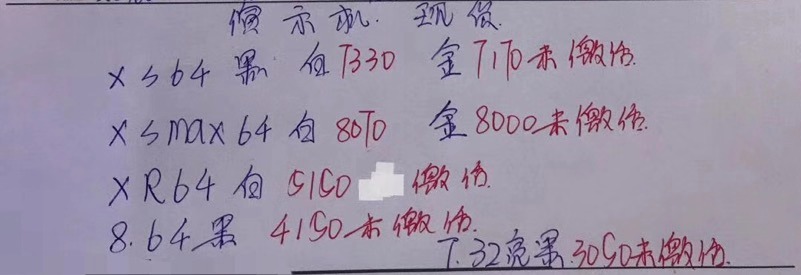 演示机. 现货
XS64 黑 白7330 金7170未激活.
XSmax64 白8070 金8000未激活.
XR64白 5150 激活.
8.64黑 4150未激活.
7.32亮黑.3050未激活.